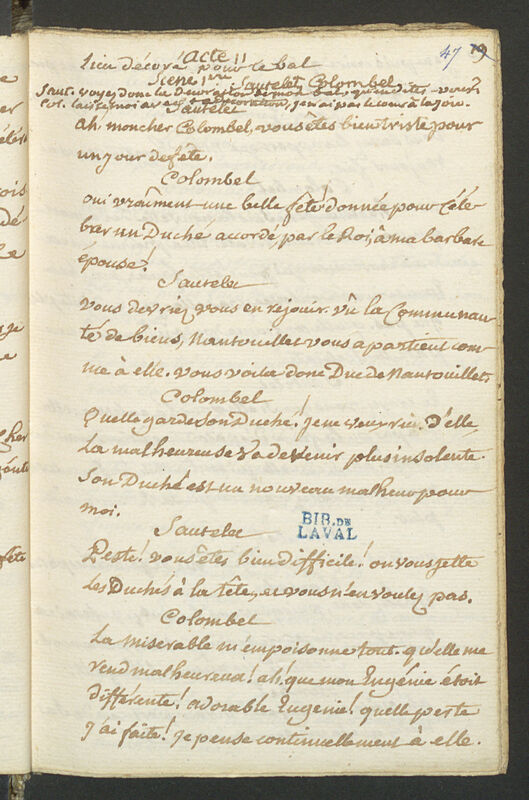 47 79
acte II
Lieu décoré pour le bal
Scene 1re Sautelet Colombel
Saut. voyez donc la Décoration
Col. laissez moi avec la décoration, je n'ai pas le cœur à la joie.
Sautelet
ah, mon cher Colombel, vous êtes bien triste pour
un jour de fete.
Colombel
oui vraîment une belle fête! donnée pour célé-
brer un Duché accordé, par le Roi, à ma barbare
épouse!
Sautelet
vous devriez vous en rejouir. vû la Communau-
té de biens, Nantouillet vous apartient com-
me à elle. vous voila donc Duc de Nantouillet.
Colombel
Quelle garde son Duché! je ne veux rien d'elle
La malheureuse va devenir plus insolente.
Son Duché est un nouveau malheur pour
moi.
Sautelet
Peste! vous êtes bien difficile! on vous jette
Les Duchés à la tête, et vous n'en voulez pas.
Colombel
La miserable m'empoisonne tout. qu'elle me
rend malheureux! ah! que mon Eugénie étoit
différente! adorable Eugenie! quelle perte
j'ai faite! je pense continuellement à elle.
BIB. DE
LAVAL